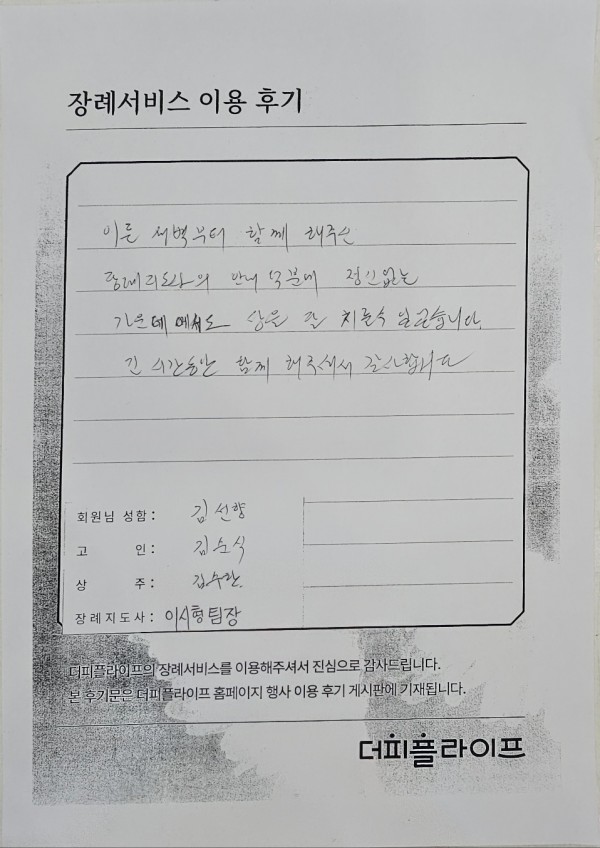 장례서비스 이용 후기
이른 새벽부터 함께 해주신
장례지도사의 안내 덕분에 정신없는
가운데에서도 상을 잘 치를수 있었습니다.
긴 시간동안 함께 해주셔서 감사합니다
회원님 성함 : 김선향
고 인 : 김순식
상 주 : 김수한.
장례지도사 : 이시형팀장
더피플라이프의 장례서비스를 이용해주셔서 진심으로 감사드립니다.
본 후기문은 더피플라이프 홈페이지 행사 이용 후기 게시판에 기재됩니다.
더피플라이프